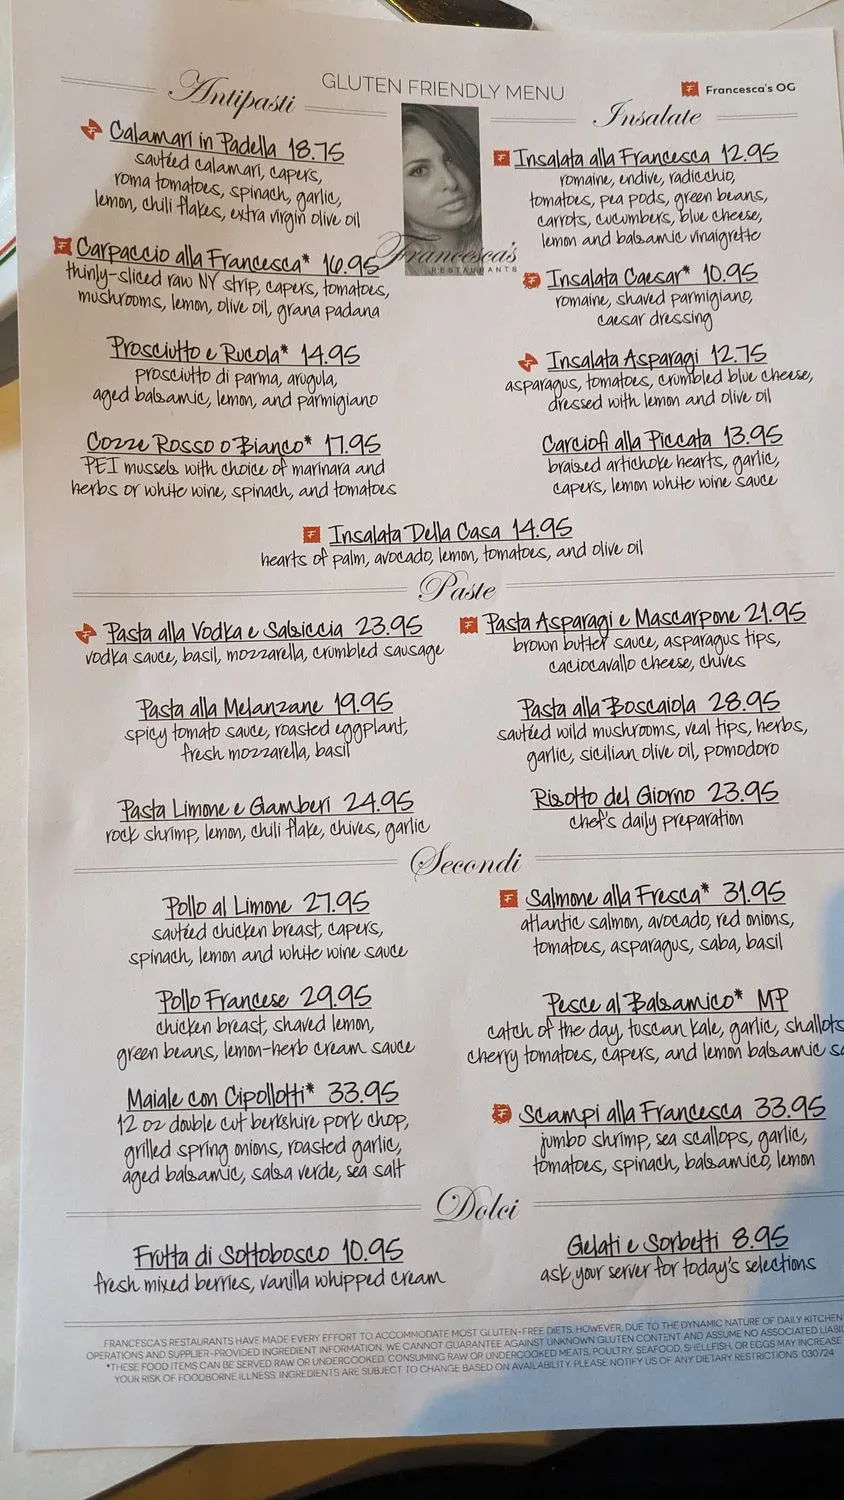 GLUTEN FRIENDLY MENU
Francesca's OG
Antipasti
Calamari in Padella 18.75
sautéed calamari, capers,
roma tomatoes, spinach, garlic,
lemon, chili flakes, extra virgin olive oil
Carpaccio alla Francesca* 16.95
thinly-sliced raw NY strip, capers, tomatoes,
mushrooms, lemon, olive oil, grana padana
Prosciutto e Rucola* 14.95
prosciutto di parma, arugula,
aged balsamic, lemon, and parmigiano
Cozze Rosso o Bianco* 17.95
PEI mussels with choice of marinara and
herbs or white wine, spinach, and tomatoes
Francesca's
RESTAURANTS
Insalate
Insalata alla Francesca 12.95
romaine, endive, radicchio,
tomatoes, pea pods, green beans,
carrots, cucumbers, blue cheese,
lemon and balsamic vinaigrette
Insalata Caesar* 10.95
romaine, shaved parmigiano,
caesar dressing
Insalata Asparagi 12.75
asparagus, tomatoes, crumbled blue cheese,
dressed with lemon and olive oil
Carciofi alla Piccata 13.95
braised artichoke hearts, garlic,
capers, lemon white wine sauce
Insalata Della Casa 14.95
hearts of palm, avocado, lemon, tomatoes, and olive oil
Paste
Pasta alla Vodka e Salsiccia 23.95
vodka sauce, basil, mozzarella, crumbled sausage
Pasta alla Melanzane 19.95
spicy tomato sauce, roasted eggplant,
fresh mozzarella, basil
Pasta Limone e Gamberi 24.95
rock shrimp, lemon, chili flake, chives, garlic
Pasta Asparagi e Mascarpone 21.95
brown butter sauce, asparagus tips,
caciocavallo cheese, chives
Pasta alla Boscaiola 28.95
sautéed wild mushrooms, veal tips, herbs,
garlic, sicilian olive oil, pomodoro
Risotto del Giorno 23.95
chef's daily preparation
Secondi
Pollo al Limone 27.95
sautéed chicken breast, capers,
spinach, lemon and white wine sauce
Pollo Francese 29.95
chicken breast, shaved lemon,
green beans, lemon-herb cream sauce
Maiale con Cipollotti* 33.95
12 oz double cut berkshire pork chop,
grilled spring onions, roasted garlic,
aged balsamic, salsa verde, sea salt
Salmone alla Fresca* 31.95
atlantic salmon, avocado, red onions,
tomatoes, asparagus, saba, basil
Pesce al Balsamico* MP
catch of the day, tuscan kale, garlic, shallots
cherry tomatoes, capers, and lemon balsamic
Scampi alla Francesca 33.95
jumbo shrimp, sea scallops, garlic,
tomatoes, spinach, balsamico, lemon
Dolci
Frutta di Sottobosco 10.95
fresh mixed berries, vanilla whipped cream
Gelati e Sorbetti 8.95
ask your server for today's selections
FRANCESCA'S RESTAURANTS HAVE MADE EVERY EFFORT TO ACCOMMODATE MOST GLUTEN-FREE DIETS. HOWEVER, DUE TO THE DYNAMIC NATURE OF DAILY KITCHEN
OPERATIONS AND SUPPLIER-PROVIDED INGREDIENT INFORMATION, WE CANNOT GUARANTEE AGAINST UNKNOWN GLUTEN CONTENT AND ASSUME NO ASSOCIATED
*THESE FOOD ITEMS CAN BE SERVED RAW OR UNDERCOOKED. CONSUMING RAW OR UNDERCOOKED MEATS, POULTRY, SEAFOOD, SHELLFISH, OR EGGS MAY INCREASE
YOUR RISK OF FOODBORNE ILLNESS. INGREDIENTS ARE SUBJECT TO CHANGE BASED ON AVAILABILITY. PLEASE NOTIFY US OF ANY DIETARY RESTRICTIONS. 030724